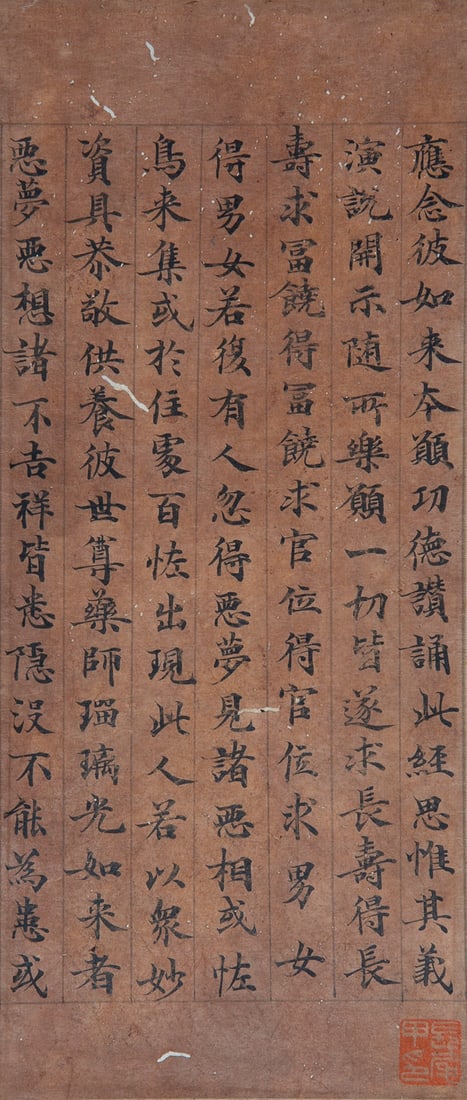 應念彼如来本願功德讚誦此經思惟其義
演說開示随所樂願一切皆遂求長壽得長
壽求冨饒得冨饒求官位得官位求男女
得男女若復有人忽得惡夢見諸惡相或恠
鳥来集或於住處百恠出現此人若以衆妙
資具恭敬供養彼世尊藥師瑠璃光如来者
惡夢惡想諸不吉祥皆悉隱没不能為患或